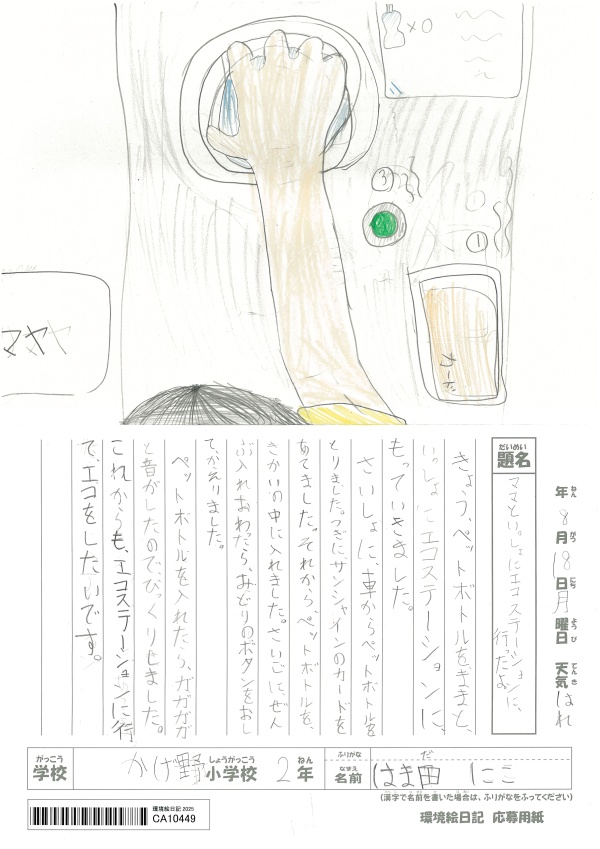 ×0
③
①
カード
マヤヤ
題名
だいめい
ママといっしょにエコステーションに、
行ったよ
年 8月18日 月曜日 天気 はれ
ねん がつ にち ようび てんき
きょう、ペットボトルをままと、
いっしょにエコステーションに、
もっていきました。
さいしょに、車からペットボトルを
とりました。つぎに、サンシャインのカードを
あてました。それから、ペットボトルを、
きかいの中に入れました。さいごに、ぜん
ぶ入れおわったら、みどりのボタンをおし
て、かえりました。
ペットボトルを入れたら、ガガガガ
と音がしたのでびっくりしました。
これからも、エコステーションに行っ
て、エコをしたいです。
がっこう
学校 かげ野 小学校 2年
しょうがっこう ねん
ふりがな だ
なまえ
名前 はま田 にこ
(漢字で名前を書いた場合は、ふりがなをふってください)
環境絵日記 2025
CA10449
環境絵日記 応募用紙